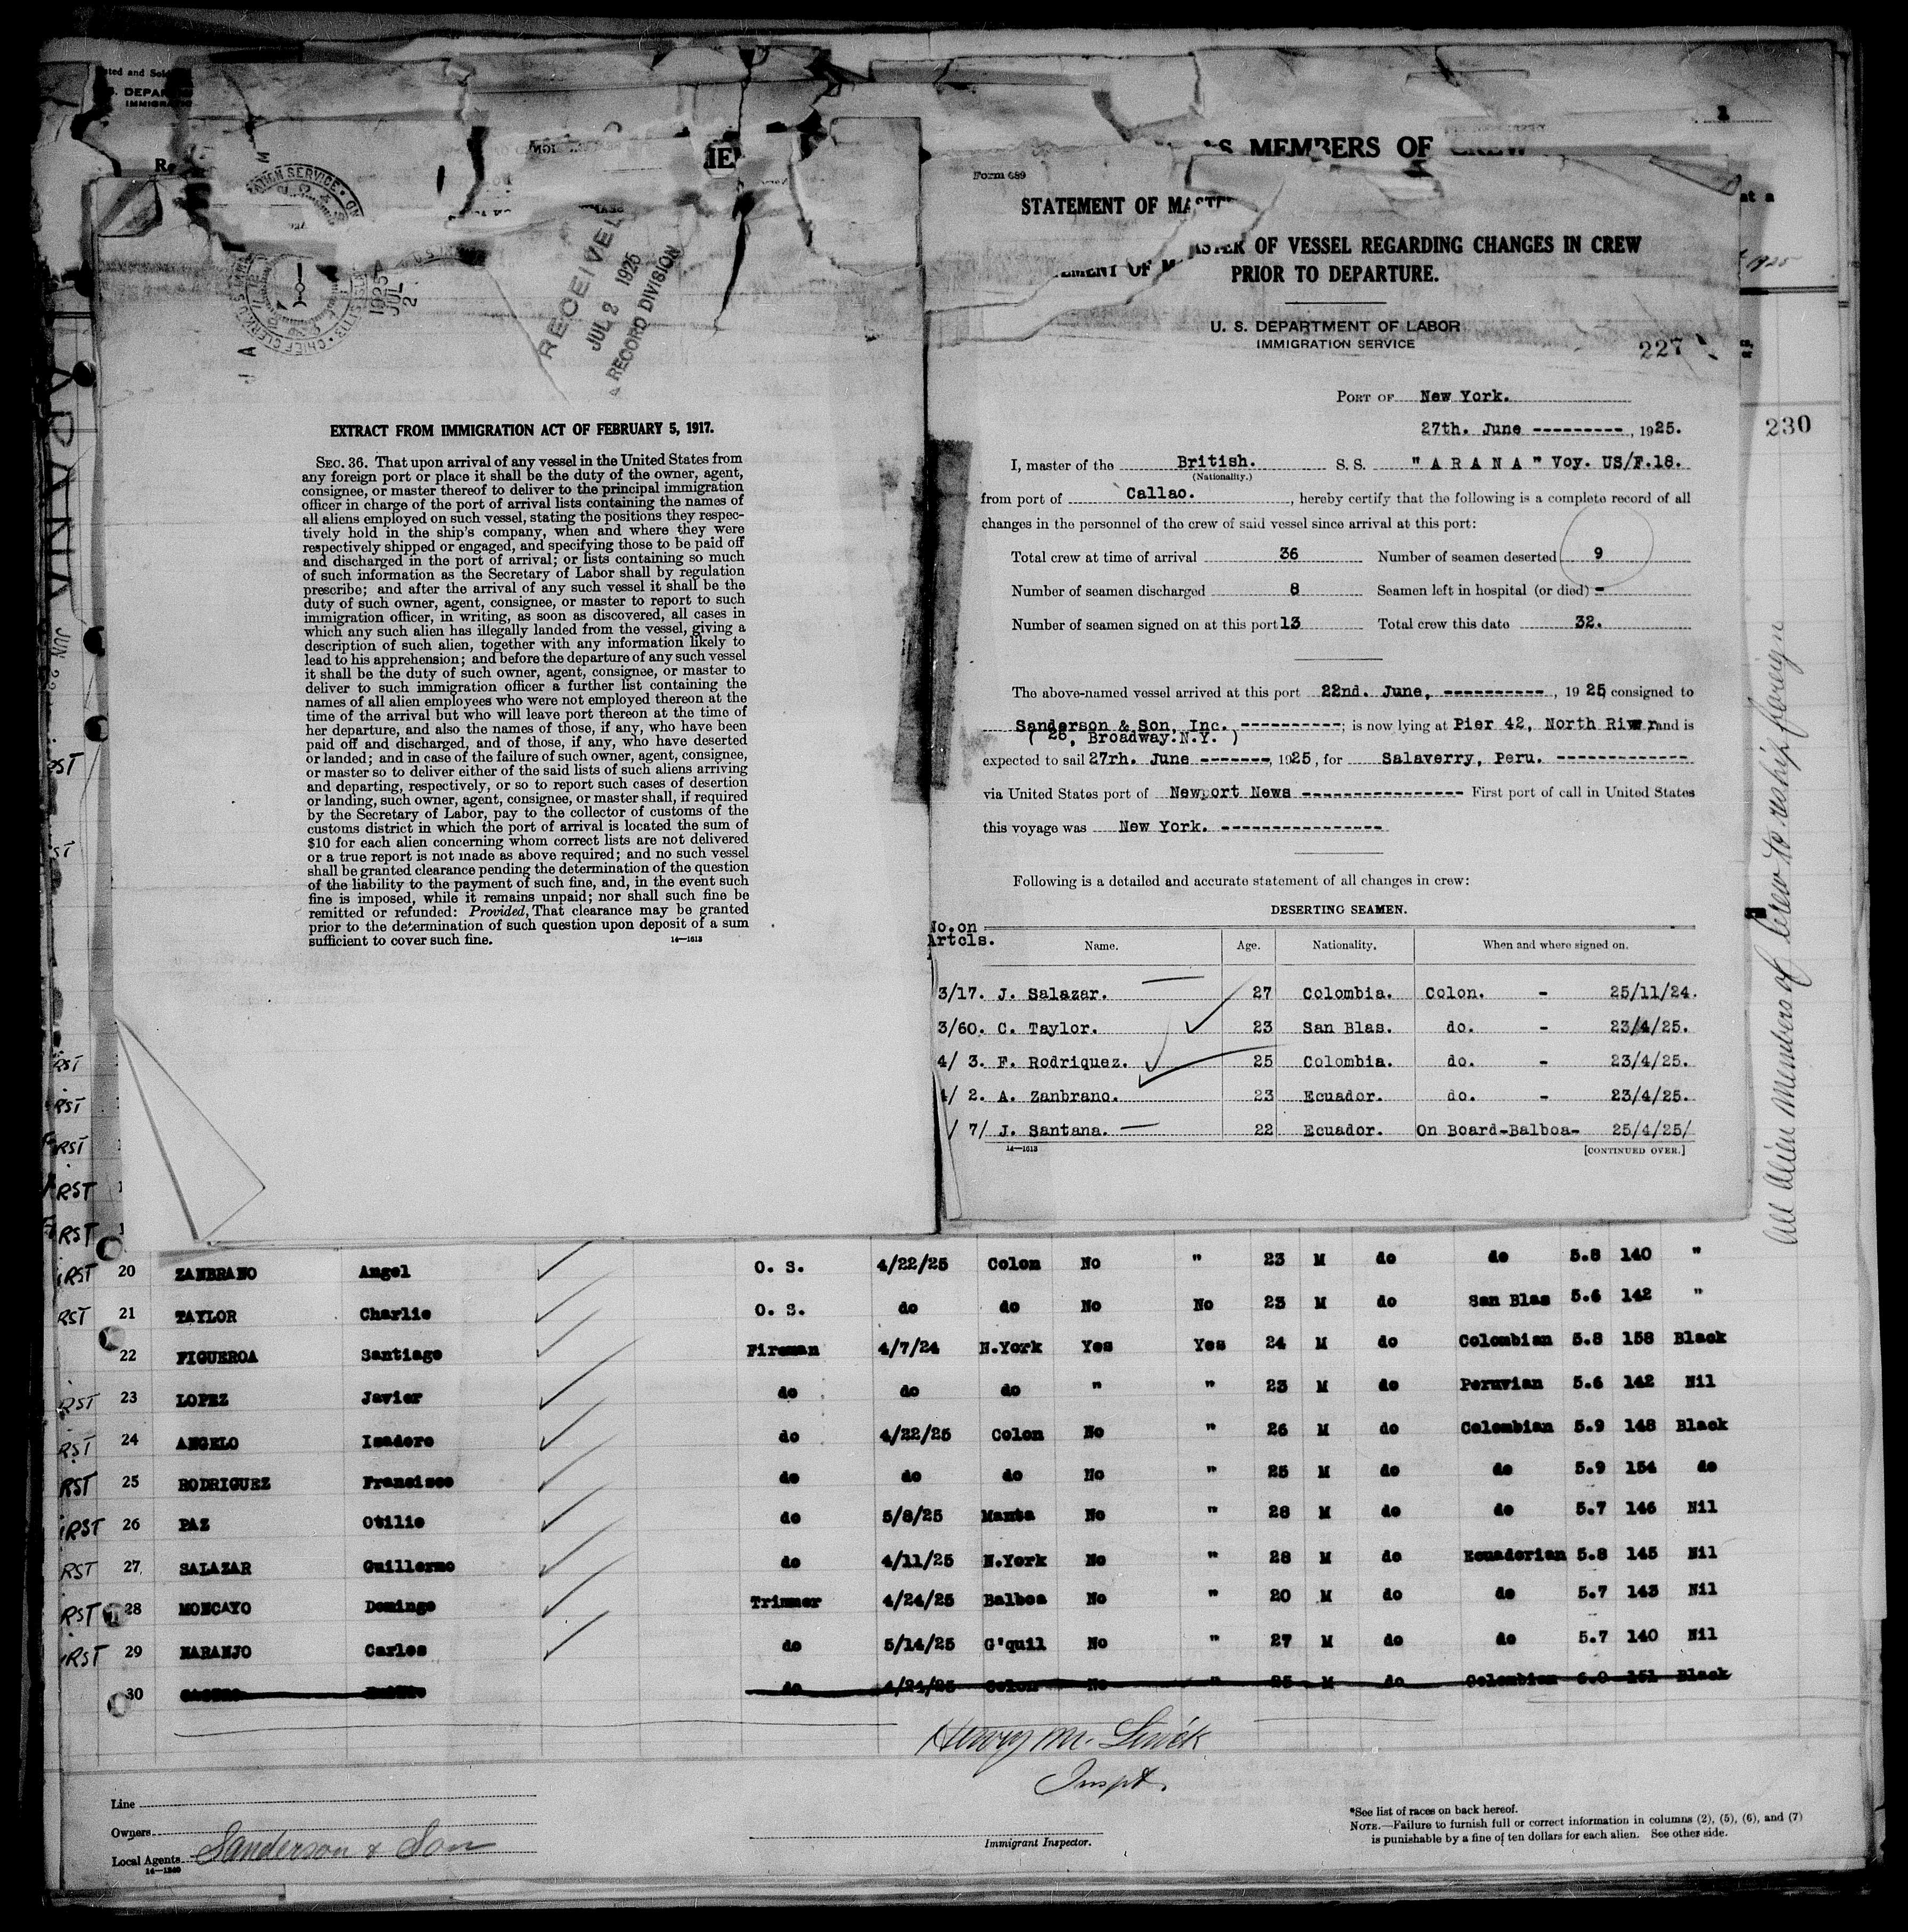 S. DEPAR
IMMIGRATIO
Re
RECEIVED
JUL 2 1925
RECORD DIVISION
1925
JUL
2
ARANA
EXTRACT FROM IMMIGRATION ACT OF FEBRUARY 5, 1917.
SEC. 36. That upon arrival of any vessel in the United States from
any foreign port or place it shall be the duty of the owner, agent,
consignee, or master thereof to deliver to the principal immigration
officer in charge of the port of arrival lists containing the names of
all aliens employed on such vessel, stating the positions they respec-
tively hold in the ship's company, when and where they were
respectively shipped or engaged, and specifying those to be paid off
and discharged in the port of arrival; or lists containing so much
of such information as the Secretary of Labor shall by regulation
prescribe; and after the arrival of any such vessel it shall be the
duty of such owner, agent, consignee, or master to report to such
immigration officer, in writing, as soon as discovered, all cases in
which any such alien has illegally landed from the vessel, giving a
description of such alien, together with any information likely to
lead to his apprehension; and before the departure of any such vessel
it shall be the duty of such owner, agent, consignee, or master to
deliver to such immigration officer a further list containing the
names of all alien employees who were not employed thereon at the
time of the arrival but who will leave port thereon at the time of
her departure, and also the names of those, if any, who have been
paid off and discharged, and of those, if any, who have deserted
or landed; and in case of the failure of such owner, agent, consignee,
or master so to deliver either of the said lists of such aliens arriving
and departing, respectively, or so to report such cases of desertion
or landing, such owner, agent, consignee, or master shall, if required
by the Secretary of Labor, pay to the collector of customs of the
customs district in which the port of arrival is located the sum of
$10 for each alien concerning whom correct lists are not delivered
or a true report is not made as above required; and no such vessel
shall be granted clearance pending the determination of the question
of the liability to the payment of such fine, and, in the event such
fine is imposed, while it remains unpaid; nor shall such fine be
remitted or refunded: Provided, That clearance may be granted
prior to the determination of such question upon deposit of a sum
sufficient to cover such fine. 14—1613
S MEMBERS OF CREW
Form 689
STATEMENT OF MASTE
ASTER OF VESSEL REGARDING CHANGES IN CREW
EMENT OF M
PRIOR TO DEPARTURE.
U. S. DEPARTMENT OF LABOR
IMMIGRATION SERVICE
227
230
PORT OF New York.
27th. June ---------, 1925.
I, master of the British. S. S. "ARANA" Voy. US/F.18.
(Nationality.)
from port of Callao., hereby certify that the following is a complete record of all
changes in the personnel of the crew of said vessel since arrival at this port:
Total crew at time of arrival 36 Number of seamen deserted 9
Number of seamen discharged 8 Seamen left in hospital (or died) -
Number of seamen signed on at this port 13 Total crew this date 32.
The above-named vessel arrived at this port 22nd. June, ----------, 1925, consigned to
Sanderson & Son, Inc. ----------; is now lying at Pier 42, North River and is
( 26, Broadway.N.Y. )
expected to sail 27rh. June -------, 1925, for Salaverry, Peru. -------------
via United States port of Newport News ---------------- First port of call in United States
this voyage was New York. ----------------
Following is a detailed and accurate statement of all changes in crew:
DESERTING SEAMEN.
No.on
Artcls. Name. Age. Nationality. When and where signed on.
3/17. J. Salazar. 27 Colombia. Colon. - 25/11/24.
3/60. C. Taylor. 23 San Blas. do. - 23/4/25.
4/ 3. F. Rodriquez. 25 Colombia. do. - 23/4/25.
4/ 2. A. Zanbrano. 23 Ecuador. do. - 23/4/25.
/ 7/ J. Santana. 22 Ecuador. On Board-Balboa- 25/4/25/
14—1613 [CONTINUED OVER.]
All Alien Members of Crew to reship foreign
RST 20 ZAMBRANO Angel O. S. 4/22/25 Colon No " 23 M do do 5.8 140 "
RST 21 TAYLOR Charlie O. S. do do No No 23 M do San Blas 5.6 142 "
22 FIGUEROA Santiago Fireman 4/7/24 N.York Yes Yes 24 M do Colombian 5.8 158 Black
RST 23 LOPEZ Javier do do do " " 23 M do Peruvian 5.6 142 Nil
RST 24 ANGELO Isadore do 4/22/25 Colon No " 26 M do Colombian 5.9 148 Black
RST 25 RODRIGUEZ Francisco do do do No " 25 M do do 5.9 154 do
RST 26 PAZ Otilio do 5/8/25 Manta No " 28 M do do 5.7 146 Nil
RST 27 SALAZAR Guillermo do 4/11/25 N.York No " 28 M do Ecuadorian 5.8 145 Nil
RST 28 MONCAYO Domingo Trimmer 4/24/25 Balboa No " 20 M do do 5.7 143 Nil
RST 29 NARANJO Carlos do 5/14/25 G'quil No " 27 M do do 5.7 140 Nil
30 do 4/24/25 Colon No " 25 M do Colombian 6.0 151 Black
Inspt.
Line
Owners
Local Agents Sanderson & Son
14—1240
Immigrant Inspector.
*See list of races on back hereof.
NOTE.—Failure to furnish full or correct information in columns (2), (5), (6), and (7)
is punishable by a fine of ten dollars for each alien. See other side.